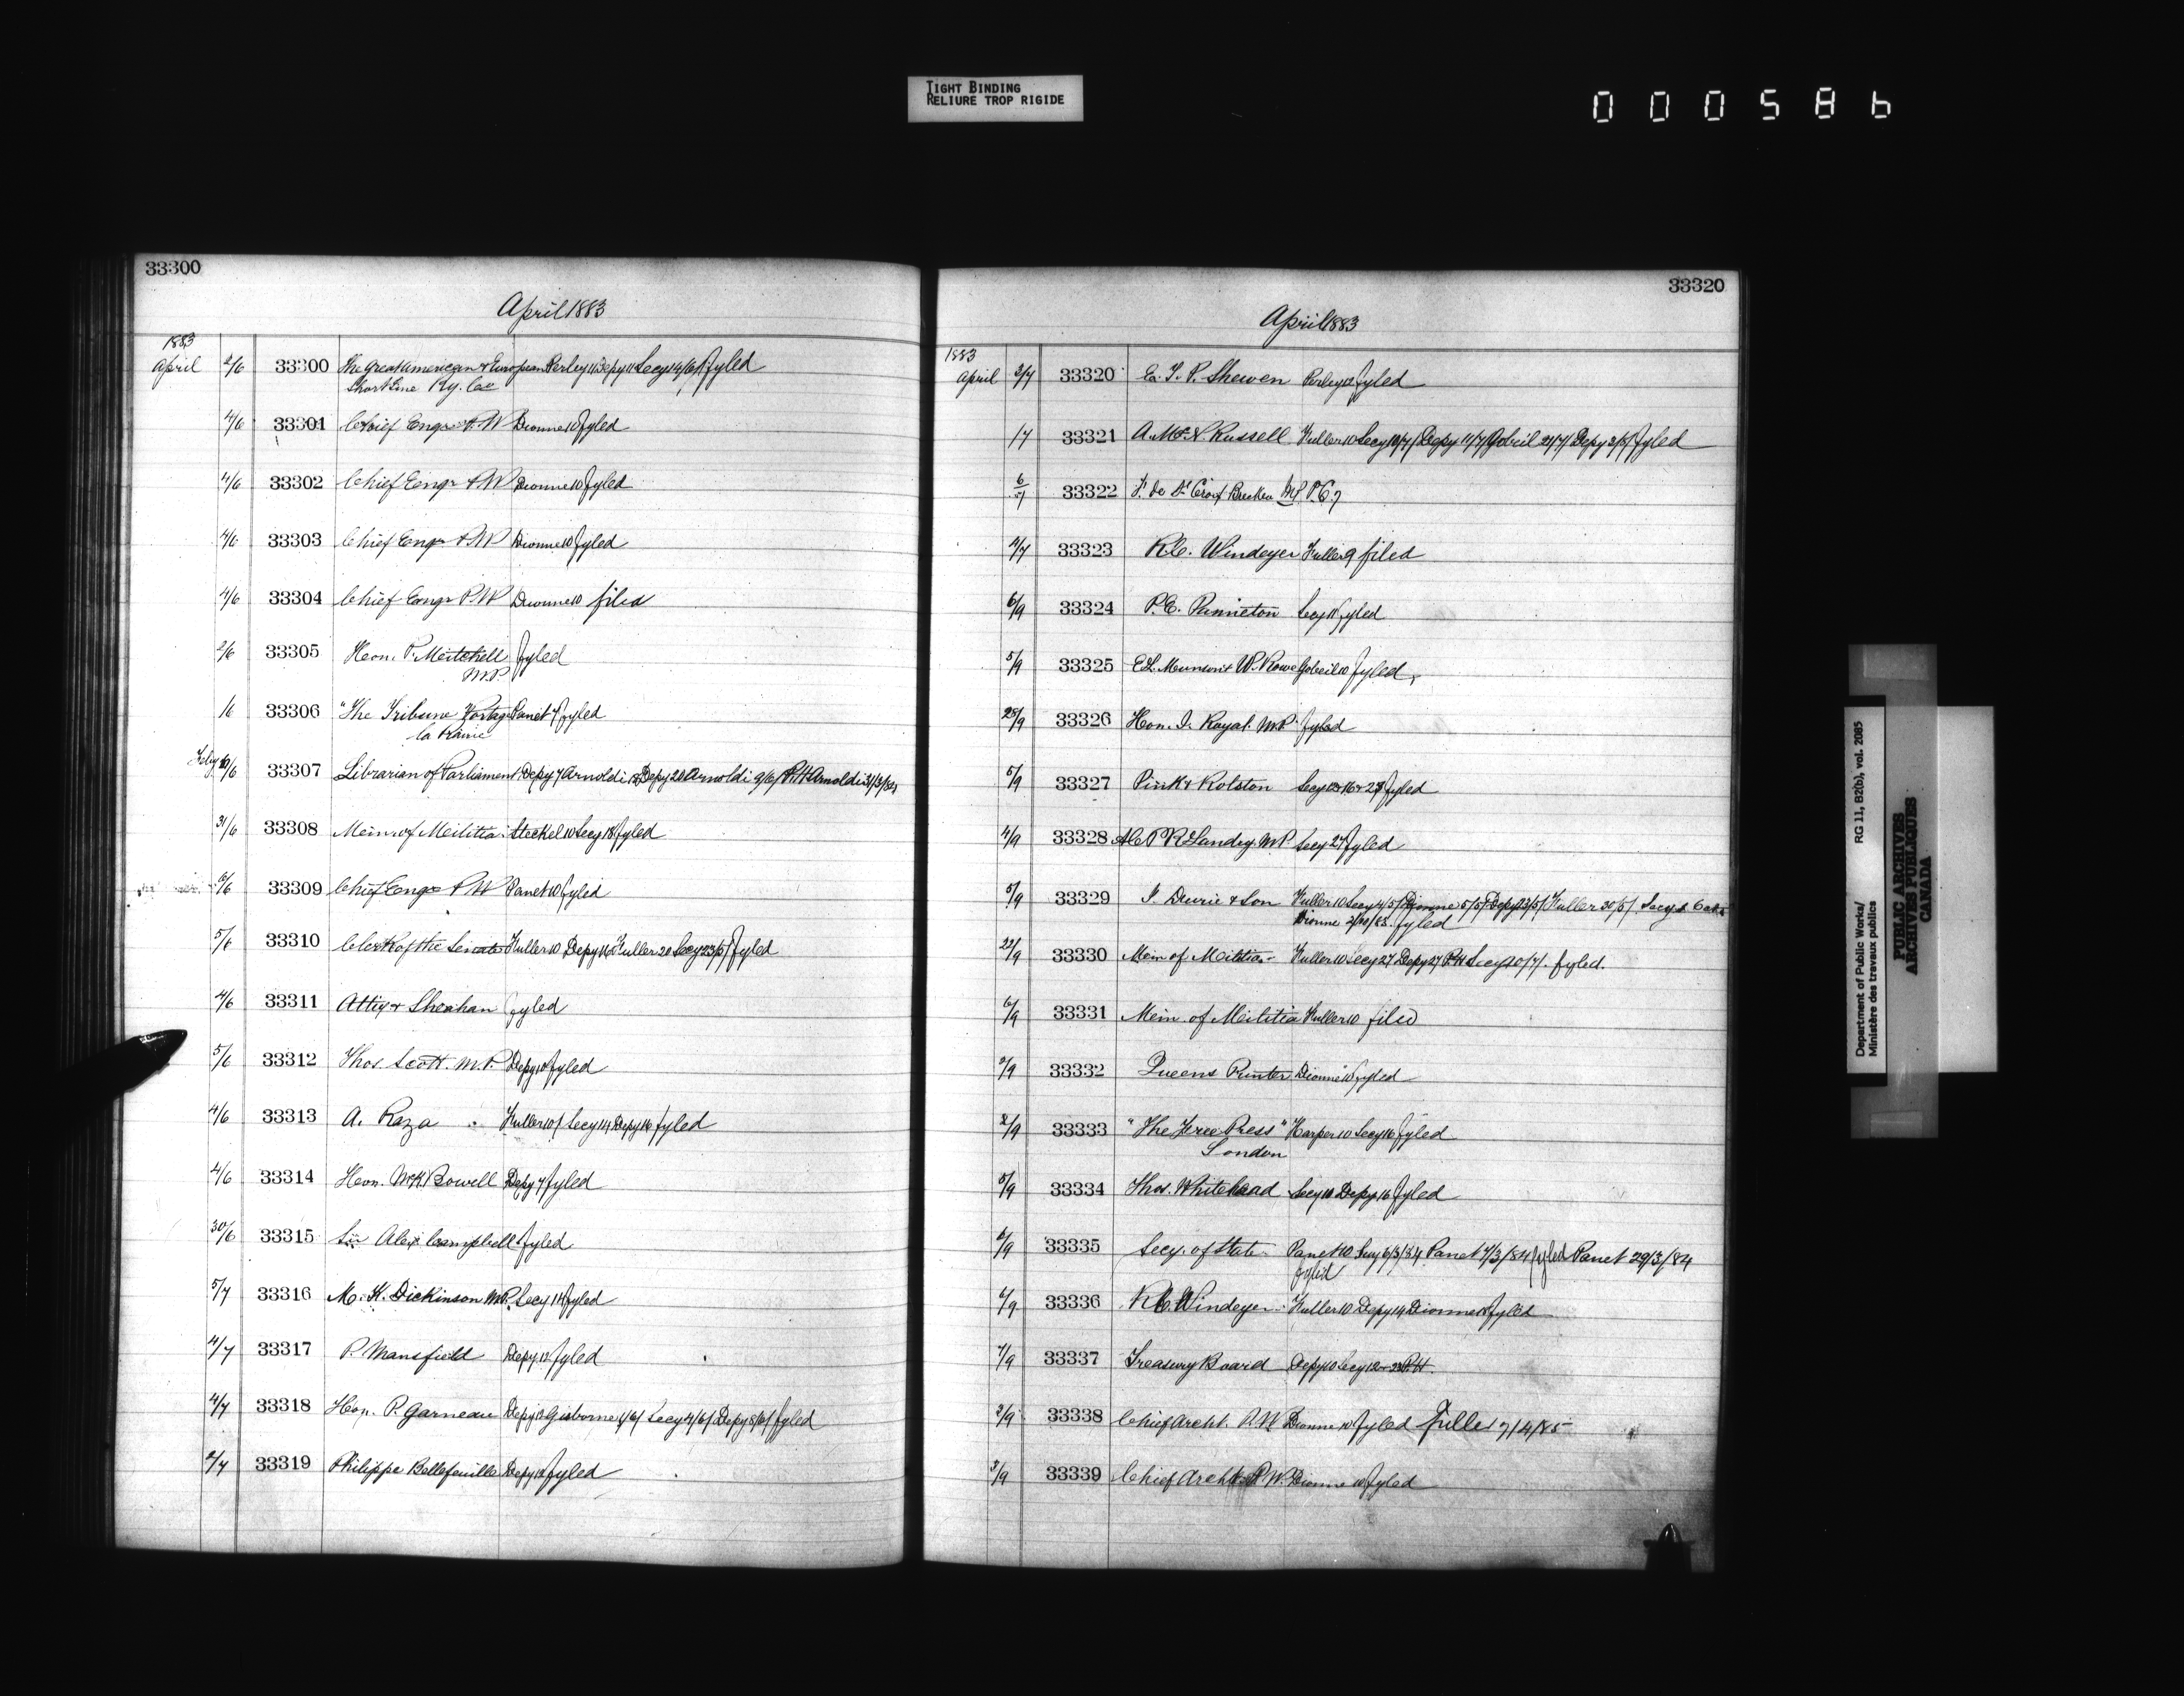 TIGHT BINDING
RELIURE TROP RIGIDE
000586
33300
April 1883
1883
April 2/6 33300 The Great American & European Perley 11 Depy 11 Secy 14/6/ fyled
Short Line Ry. Co
4/6 33301 Chief Engr P.W Dionne 10 fyled
4/6 33302 Chief Engr P.W Dionne 10 fyled
4/6 33303 Chief Engr P.W Dionne 10 fyled
4/6 33304 Chief Engr P.W Dionne 10 filed
2/6 33305 Hon. P. Mitchell fyled
M.P
/6 33306 "The Tribune Portage Panet 7 fyled
la Prairie
Feby 19/6 33307 Librarian of Parliament Depy 7 Arnoldi 18 Depy 20 Arnoldi 9/6/ P.H Arnoldi 31/3/84
31/6 33308 Min. of Militia Steckel 10 Secy 18 fyled
6/6 33309 Chief Engr P.W Panet 10 fyled
5/6 33310 Clerk of the Senate Fuller 10 Depy 16 Fuller 20 Secy 23/5/ fyled
4/6 33311 Atty & Sheahan fyled
5/6 33312 Thos. Scott. M.P. Depy 10 fyled
4/6 33313 A. Raza Fuller 10/ Secy 14 Depy 16 fyled
4/6 33314 Hon. McK. Bowell Depy 7 fyled
30/6 33315 Sir Alex Campbell fyled
5/7 33316 M. K. Dickinson M.P. Secy 14 fyled
4/7 33317 P. Mansfield Depy 12 fyled
4/7 33318 Hon. P. Garneau Depy 12 Gisborne 1/6/ Secy 4/6/ Depy 8/6/ fyled
2/7 33319 Philippe Bellefeuille Depy 12 fyled
33320
April 1883
1883
April 3/7 33320 E. T. P. Shewen Perley 12 fyled
/7 33321 A. McL. Russell Fuller 10 Secy 10/7/ Depy 11/7/ Gobeil 21/7/ Depy 2/8/ fyled
6/7 33322 F. de St Croix Brecken M.P.
4/7 33323 R.C. Windeyer Fuller 9 filed
6/9 33324 P.E. Panneton Secy 11 fyled
5/9 33325 E.L. Munson & W. Rowe Gobeil 10 fyled
28/9 33326 Hon. J. Royal. M.P. fyled
5/9 33327 Pink & Rolston Secy 12 & 16 & 27 fyled
4/9 33328 A.C.P.R. Landry M.P. Secy 27 fyled
5/9 33329 J. Durie & Son Fuller 10 Secy 4/5/ Dionne 5/5/ Depy 23/5/ Fuller 30/5/ Secy
Dionne 2/10/85. fyled
22/9 33330 Min of Militia Fuller 10 Secy 27 Depy 27 P.H Secy 10/7/. fyled.
6/9 33331 Min. of Militia Fuller 10 filed
3/9 33332 Queens Printer Dionne 10 fyled
2/9 33333 "The Free Press" Harper 10 Secy 16 fyled
London
5/9 33334 Thos. Whitehead Secy 10 Depy 16 fyled
6/9 33335 Secy. of State Panet 10 Secy 6/3/84 Panet 7/3/84 fyled Panet 29/3/84
fyled
6/9 33336 R.C. Windeyer Fuller 10 Depy 14 Dionne 18 fyled
7/9 33337 Treasury Board Depy 10 Secy 12 & 23 P.H.
3/9 33338 Chief Archt. P.W Dionne 10 fyled Fuller 7/4/85
3/9 33339 Chief Archt P.W. Dionne 10 fyled
Department of Public Works/
Ministère des travaux publics
RG 11, B2(b), vol. 2085
PUBLIC ARCHIVES
ARCHIVES PUBLIQUES
CANADA